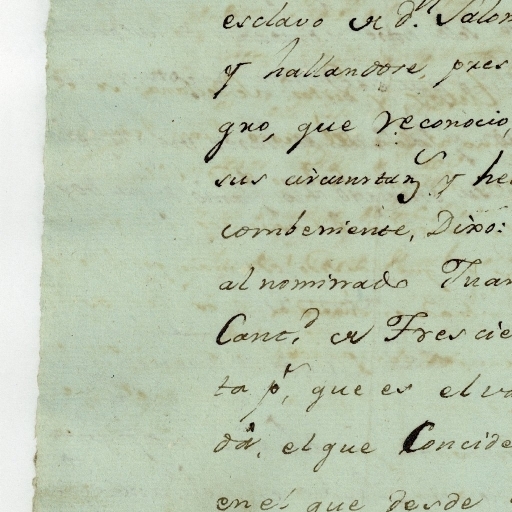 esclavo de d.n Salom
y hallandose, pres
gro, que reconocio,
sus circunstan.s y he
combeniente, Dixo:
al nominado Juan
Cant.d de Trescie
ta p.s, que es el va
da, el que Concide
en el que desde